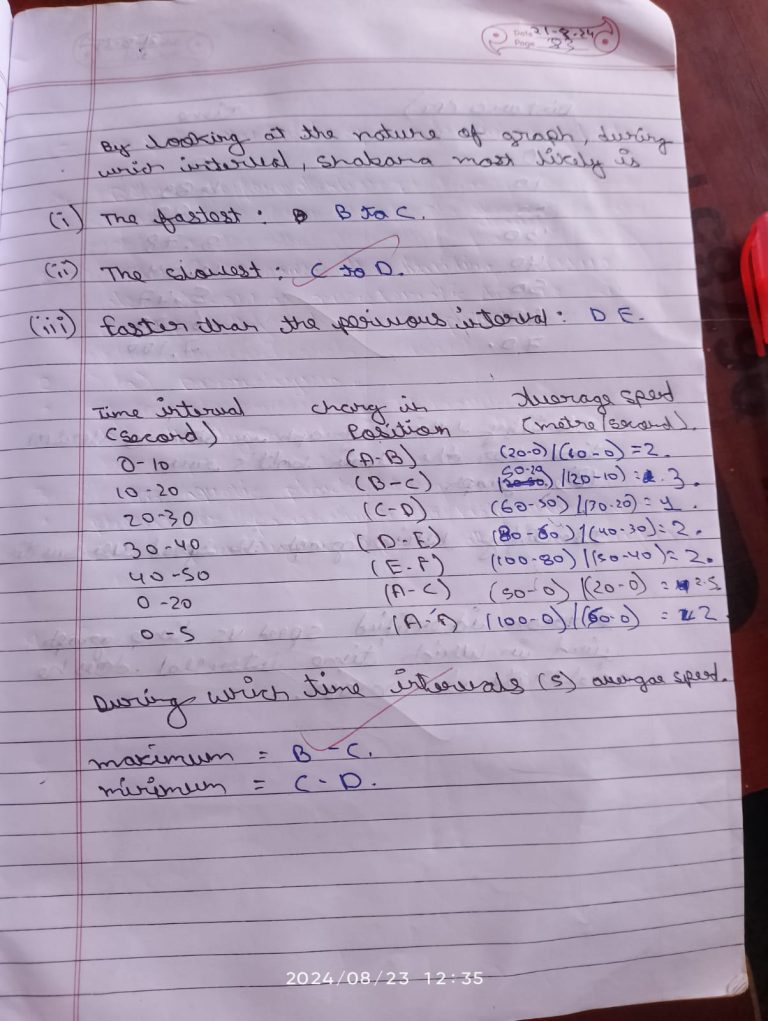 Date 21-8-24
Page 83
By looking at the nature of graph, during
which interval, Shabana most likely is
(i) The fastest : B to C.
(ii) The slowest : C to D.
(iii) faster than the perivous interval : D E.
Time interval (second) chang in Position Average sped (metre/second).
0-10 (A-B) (20-0)/(10-0) =2.
10-20 (B-C) 50-20 /(20-10) = 3.
20-30 (C-D) (60-50) /(30-20) = 1
30-40 (D-E) (80-60)/(40-30)= 2.
40-50 (E-F) (100-80)/(50-40)= 2.
0-20 (A-C) (50-0)/(20-0) = 2.5
0-5 (A-F) (100-0)/(50-0) = 2
During which time intervals (s) avergae sped.
maximum = B-C.
minimum = C-D.
2024/08/23 12:35